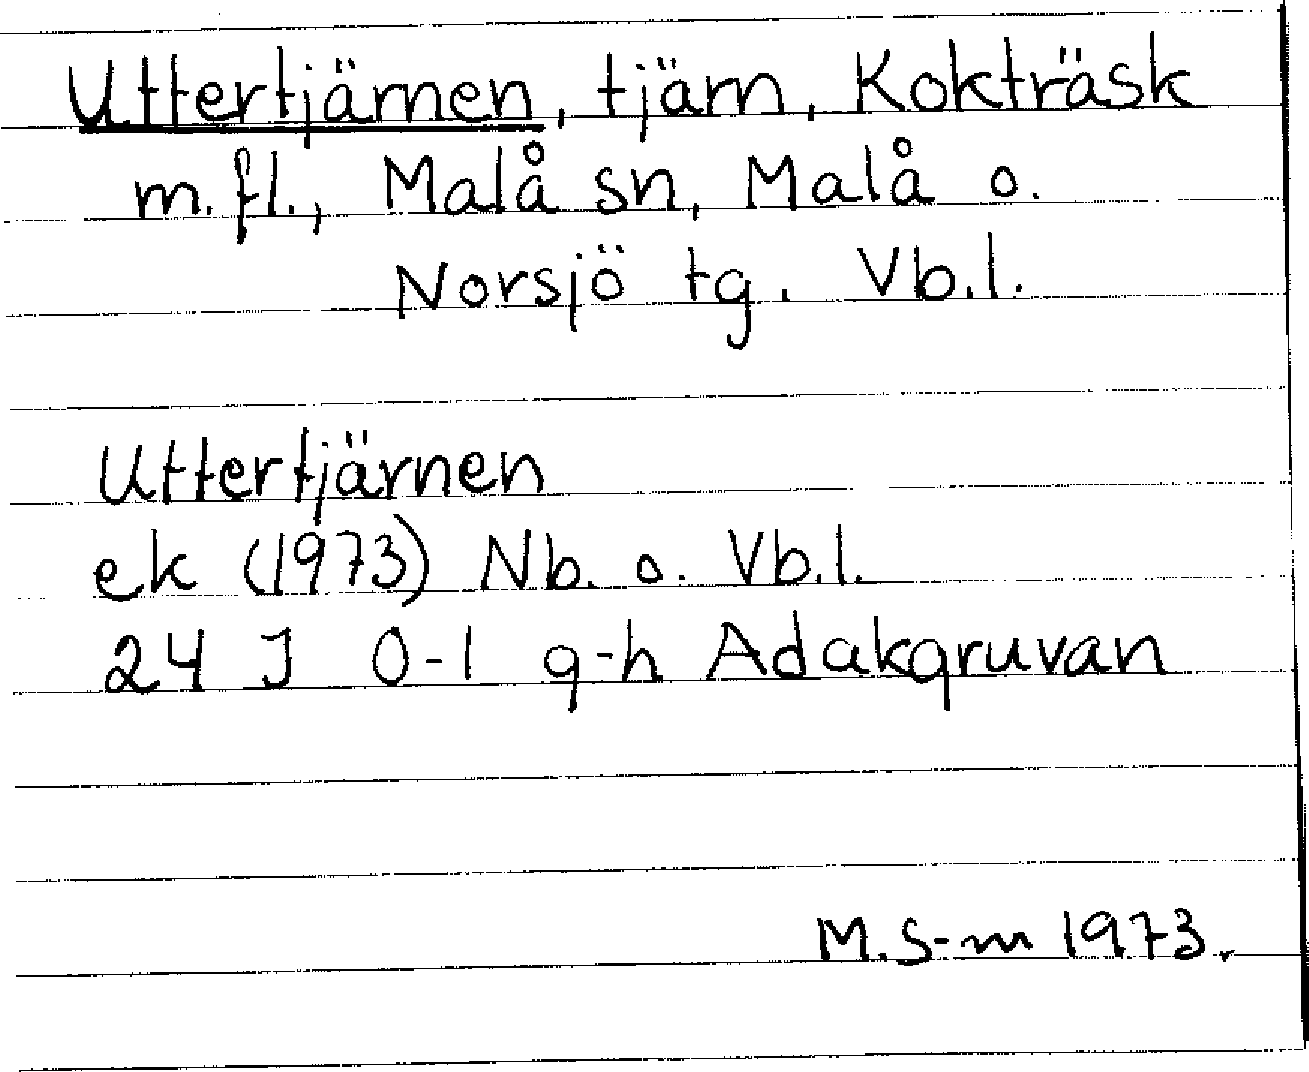 Uttertjärnen, tjärn, Kokträsk
m.fl., Malå sn, Malå o.
Norsjö tg. Vb.l.
Uttertjärnen
ek (1973) Nb. o. Vb.l.
24 J 0-1 g-h Adakgruvan
M.S-m 1973.